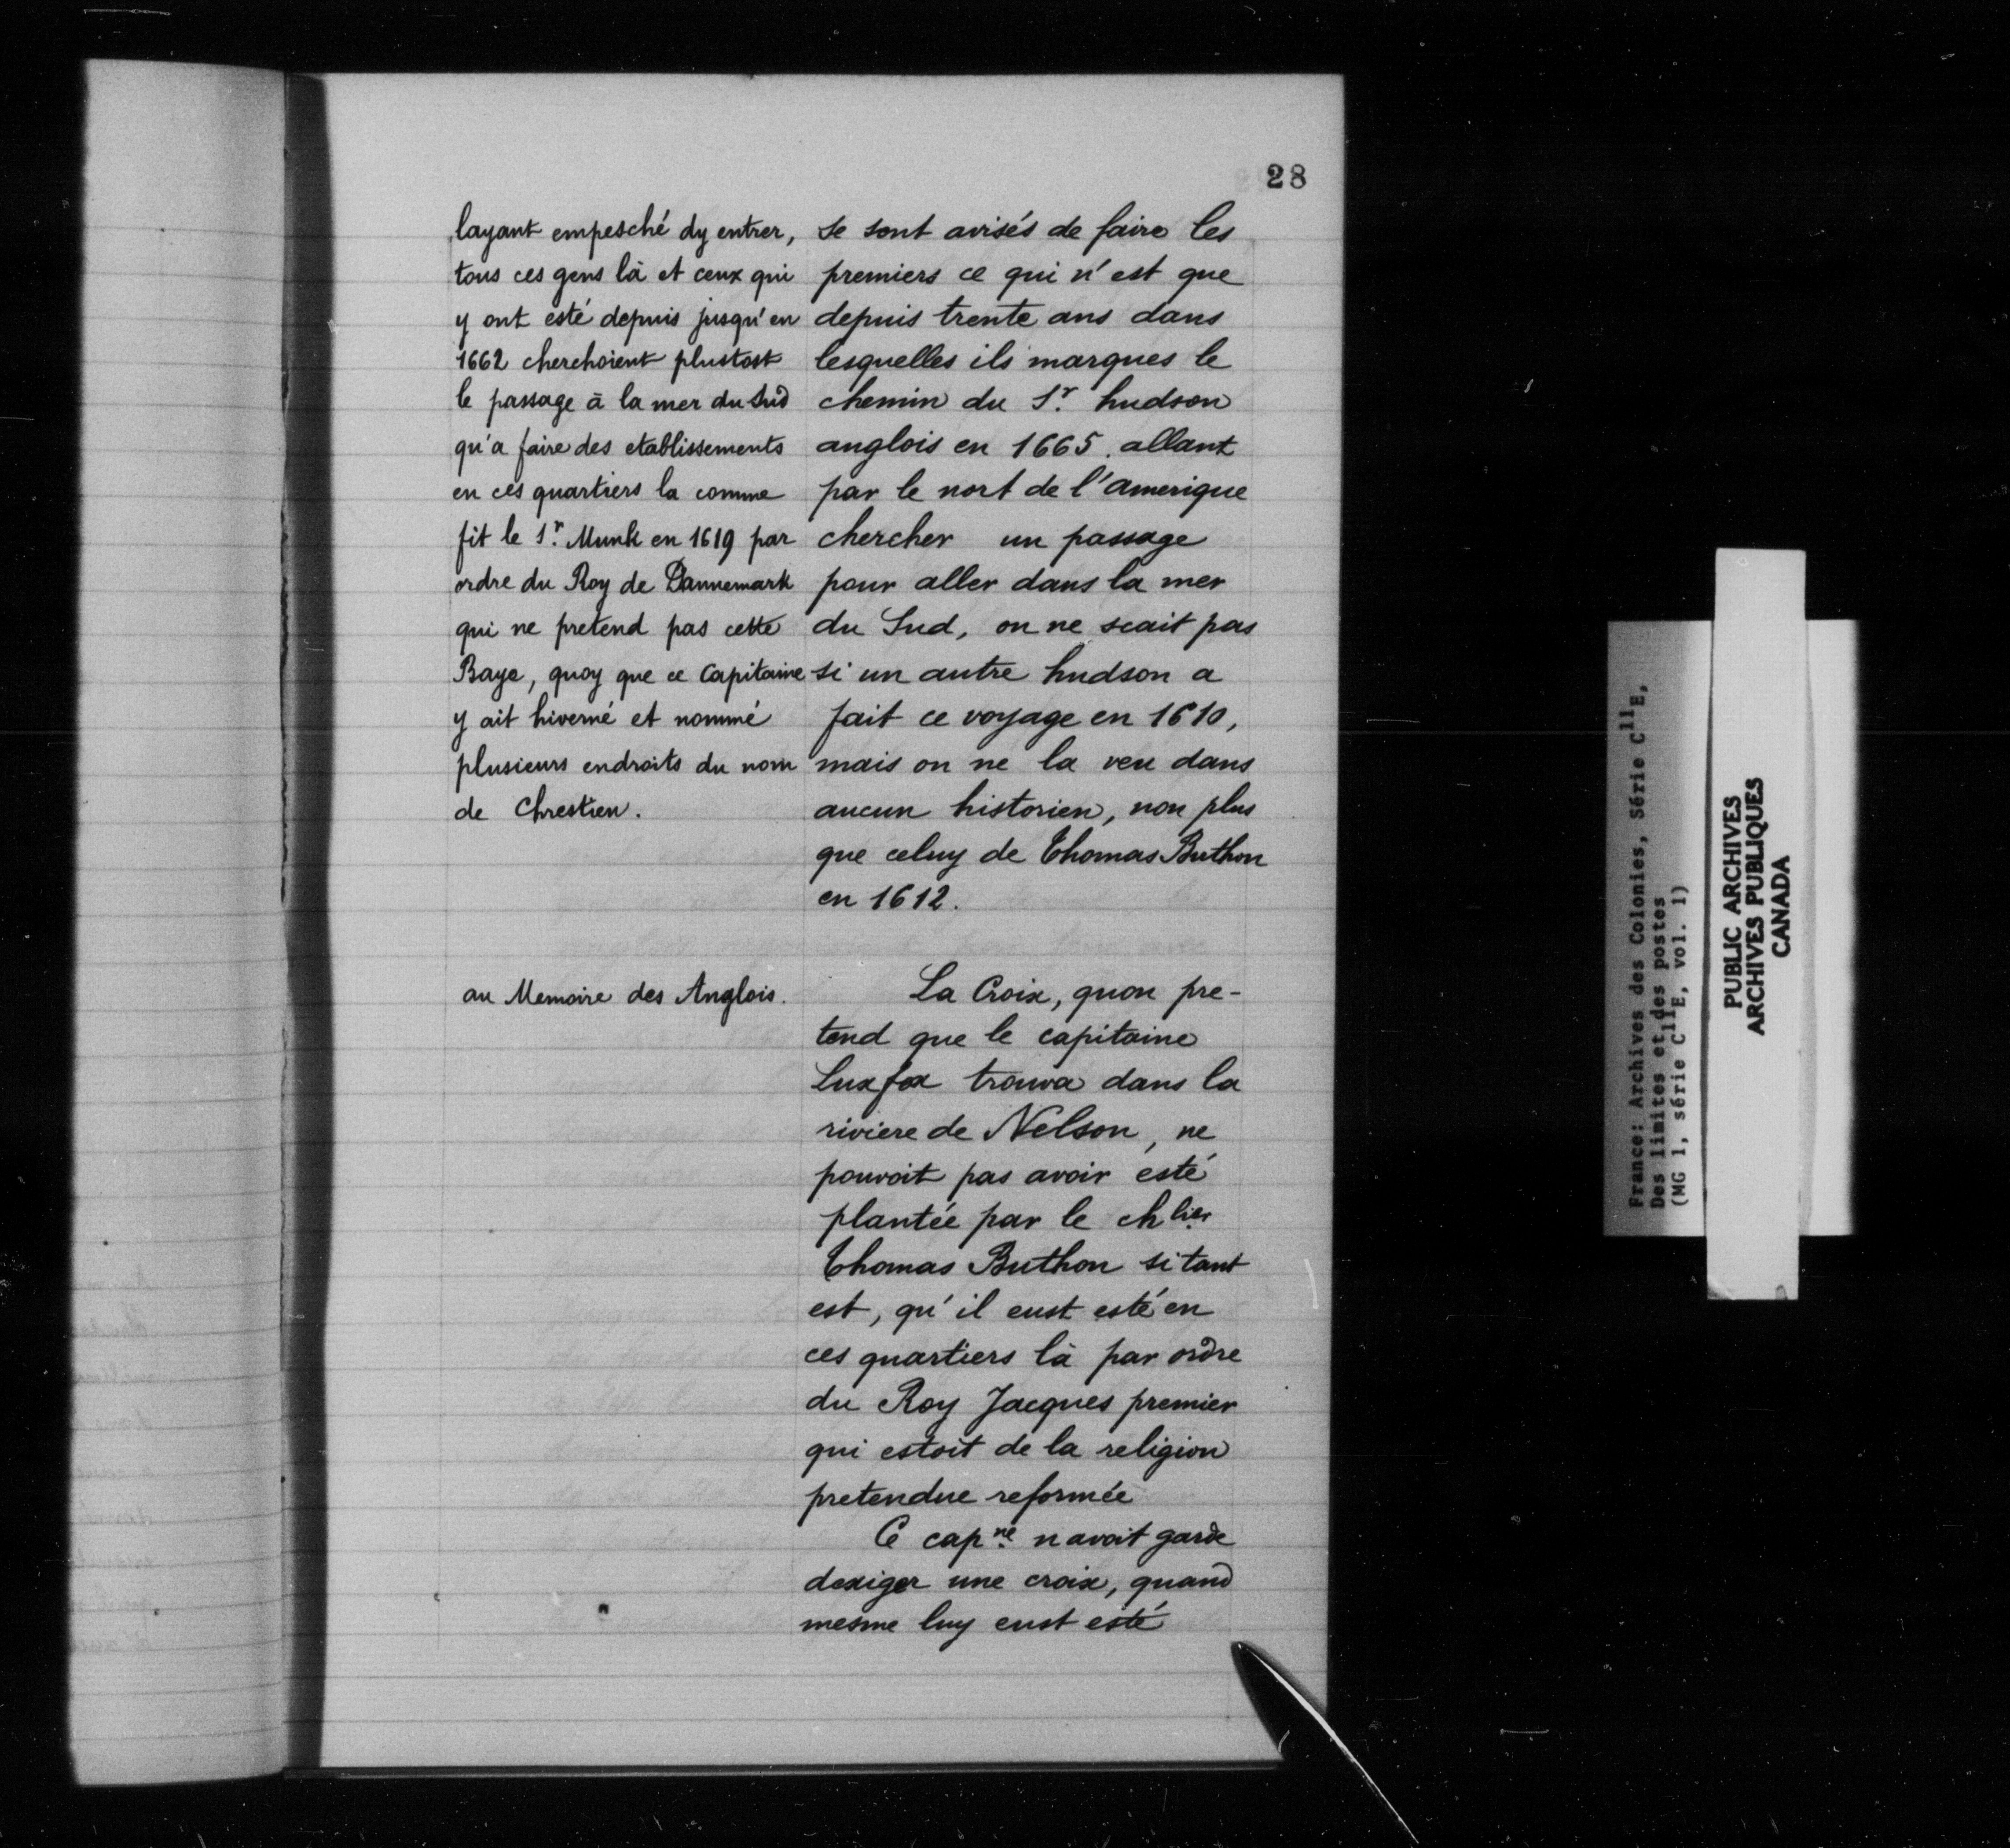 28
layant empesché dy entrer,
tous ces gens là et ceux qui
y ont esté depuis jusqu'en
1662 cherchoient plustost
le passage à la mer du Sud
qu'a faire des etablissements
en ces quartiers la comme
fit le Sr. Munk en 1619 par
ordre du Roy de Dannemark
qui ne pretend pas cette
Baye, quoy que ce Capitaine
y ait hiverné et nommé
plusieurs endroits du nom
de Chrestien.
au Memoire des Anglois.
se sont avisés de faire les
premiers ce qui n'est que
depuis trente ans dans
lesquelles ils marques le
chemin du Sr. hudson
anglois en 1665. allant
par le nort de l'amerique
chercher un passage
pour aller dans la mer
du Sud, on ne scait pas
si un autre hudson a
fait ce voyage en 1610,
mais on ne la veu dans
aucun historien, non plus
que celuy de Thomas Buthon
en 1612.
La Croix, quon pre-
tend que le capitaine
Luxfox trouva dans la
riviere de Nelson, ne
pouvoit pas avoir esté
plantée par le chlier
Thomas Buthon si tant
est, qu'il eust esté en
ces quartiers là par ordre
du Roy Jacques premier
qui estoit de la religion
pretendue reformée
Ce capne. n avoit garde
dexiger une croix, quand
mesme luy eust esté
France: Archives des Colonies, Série C11E,
Des limites et des postes
(MG 1, série C11E, vol. 1)
PUBLIC ARCHIVES
ARCHIVES PUBLIQUES
CANADA